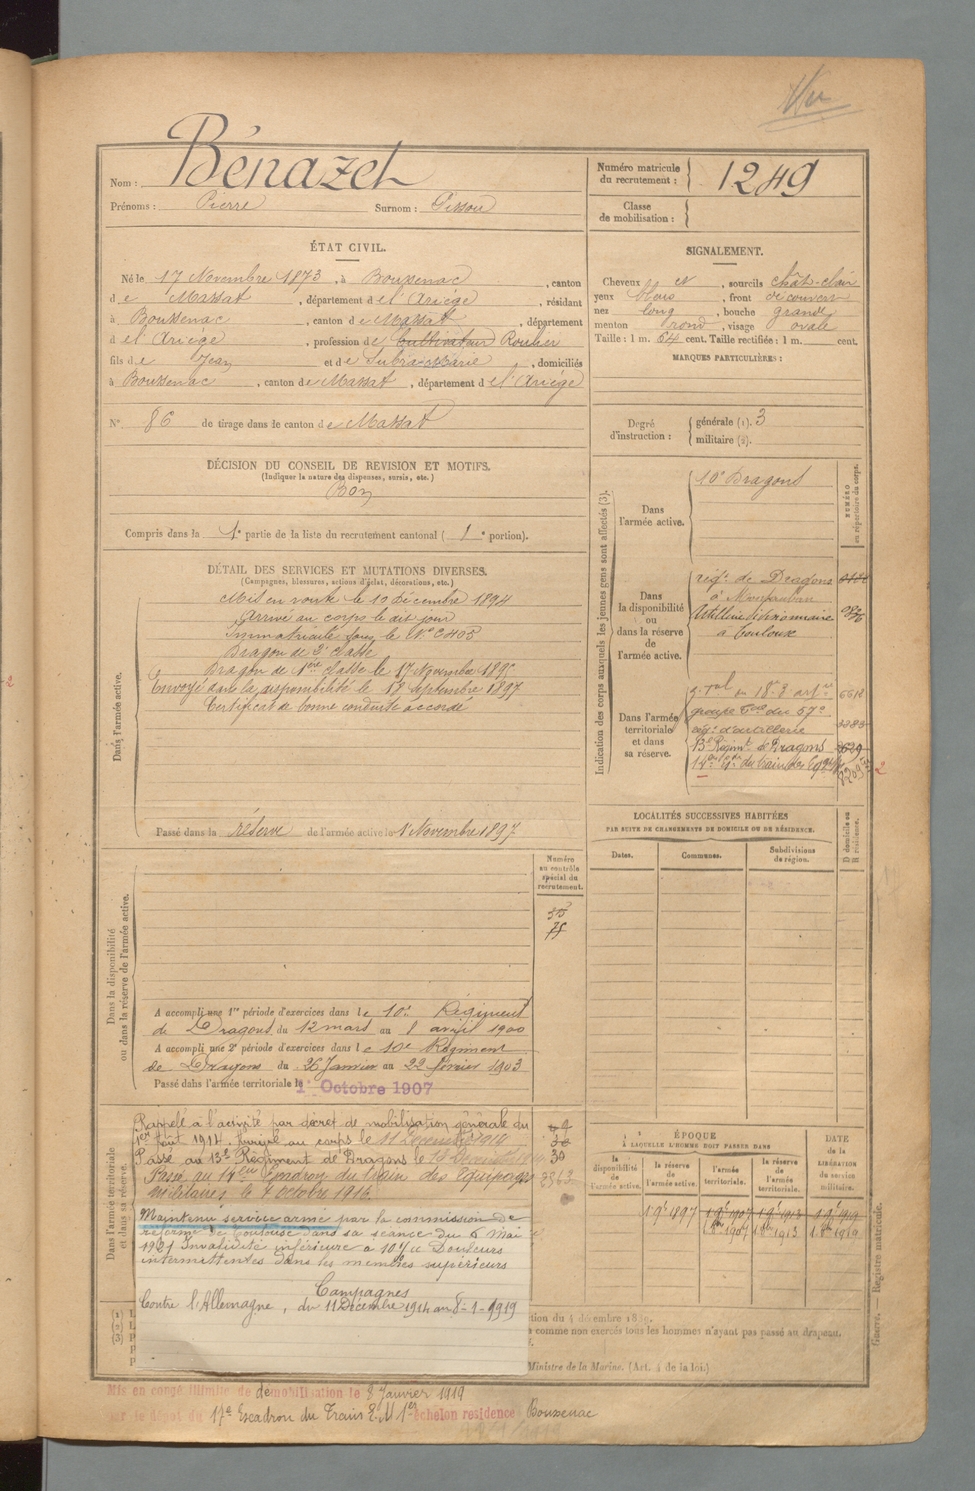 Vu
Nom : Bénazet
Prénoms : Pierre Surnom :
Numéro matricule du recrutement : 1249
Classe de mobilisation :
ÉTAT CIVIL.
Né le 17 Novembre 1873, à Boussenac, canton
de Massat, département de l'Ariège, résidant
à Boussenac, canton de Massat, département
de l'Ariège, profession de Cultivateur Roulier
fils de Jean et de Subra Marie, domiciliés
à Boussenac, canton de Massat, département de l'Ariège
N° 86 de tirage dans le canton de Massat
SIGNALEMENT.
Cheveux , sourcils chât-clair
yeux bleus, front découvert
nez long, bouche grande
menton rond, visage ovale
Taille : 1 m. 64 cent. Taille rectifiée : 1 m. cent.
MARQUES PARTICULIÈRES :
Degré d'instruction : générale (1). 3
militaire (2).
DÉCISION DU CONSEIL DE REVISION ET MOTIFS.
(Indiquer la nature des dispenses, sursis, etc.)
Bon
Compris dans la 1e partie de la liste du recrutement cantonal (1e portion).
DÉTAIL DES SERVICES ET MUTATIONS DIVERSES.
(Campagnes, blessures, actions d'éclat, décorations, etc.)
Dans l'armée active.
Mis en route le 10 Décembre 1894
Arrivé au corps le dit jour
Immatriculé sous le N°
Dragon de 2e classe
Dragon de 1ère classe le 17 Novembre
Envoyé dans la disponibilité le 18 Septembre 1897
Certificat de bonne conduite accordé
Passé dans la réserve de l'armée active le 1er Novembre 1897
Indication des corps auxquels les jeunes gens sont affectés (3).
NUMÉRO au répertoire du corps.
Dans l'armée active.
10e Dragons
Dans la disponibilité ou dans la réserve de l'armée active.
régt de Dragons
à Montauban
Artillerie divisionnaire
à Toulouse
Dans l'armée territoriale et dans sa réserve.
groupe du 57e
régt d'artillerie
13e Régimt de Dragons
du train des
LOCALITÉS SUCCESSIVES HABITÉES
PAR SUITE DE CHANGEMENTS DE DOMICILE OU DE RÉSIDENCE.
Dates. Communes. Subdivisions de région. D domicile ou R résidence.
Numéro au contrôle spécial du recrutement.
Dans la disponibilité ou dans la réserve de l'armée active.
A accompli une 1re période d'exercices dans le 10e Régiment
de Dragons du 12 mars au 8 avril 1900
A accompli une 2e période d'exercices dans le 10e Régiment
de Dragons du 26 Janvier au 22 février 1903
Passé dans l'armée territoriale le 1er Octobre 1907
Dans l'armée territoriale et dans sa réserve.
Rappelé à l'activité par décret de mobilisation générale du
1er Août 1914. Arrivé au corps le 11 Décembre 1914
Passé au 13e Régiment de Dragons le
Passé au 17ème Escadron du train des Equipages
militaires le 7 octobre 1916.
30
Maintenu service armé par la commission de
réforme de Toulouse dans sa séance du 6 Mai
1921 Invalidité inférieure à 10% Douleurs
intermittentes dans les membres supérieurs
Campagnes
Contre l'Allemagne, du 11 Décembre 1914 au 8-1-1919
ÉPOQUE
À LAQUELLE L'HOMME DOIT PASSER DANS
DATE DE LA LIBÉRATION du service militaire.
la disponibilité de l'armée active. la réserve de l'armée active. l'armée territoriale. la réserve de l'armée territoriale.
1 9e 1897 1 9e 1907 1 9e 1913 1 9e 1919
1 8bre 1907 1 8bre 1913 1 8bre 1919
(1)
(2)
(3)
tion du 4 décembre 1889.
comme non exercés tous les hommes n'ayant pas passé au drapeau.
Ministre de la Marine. (Art. 4 de la loi.)
Guerre. — Registre matricule.
Mis en congé illimité de démobilisation le 8 Janvier 1919
sur le dépôt du 17e Escadron du Train E. M 1er échelon résidence Boussenac